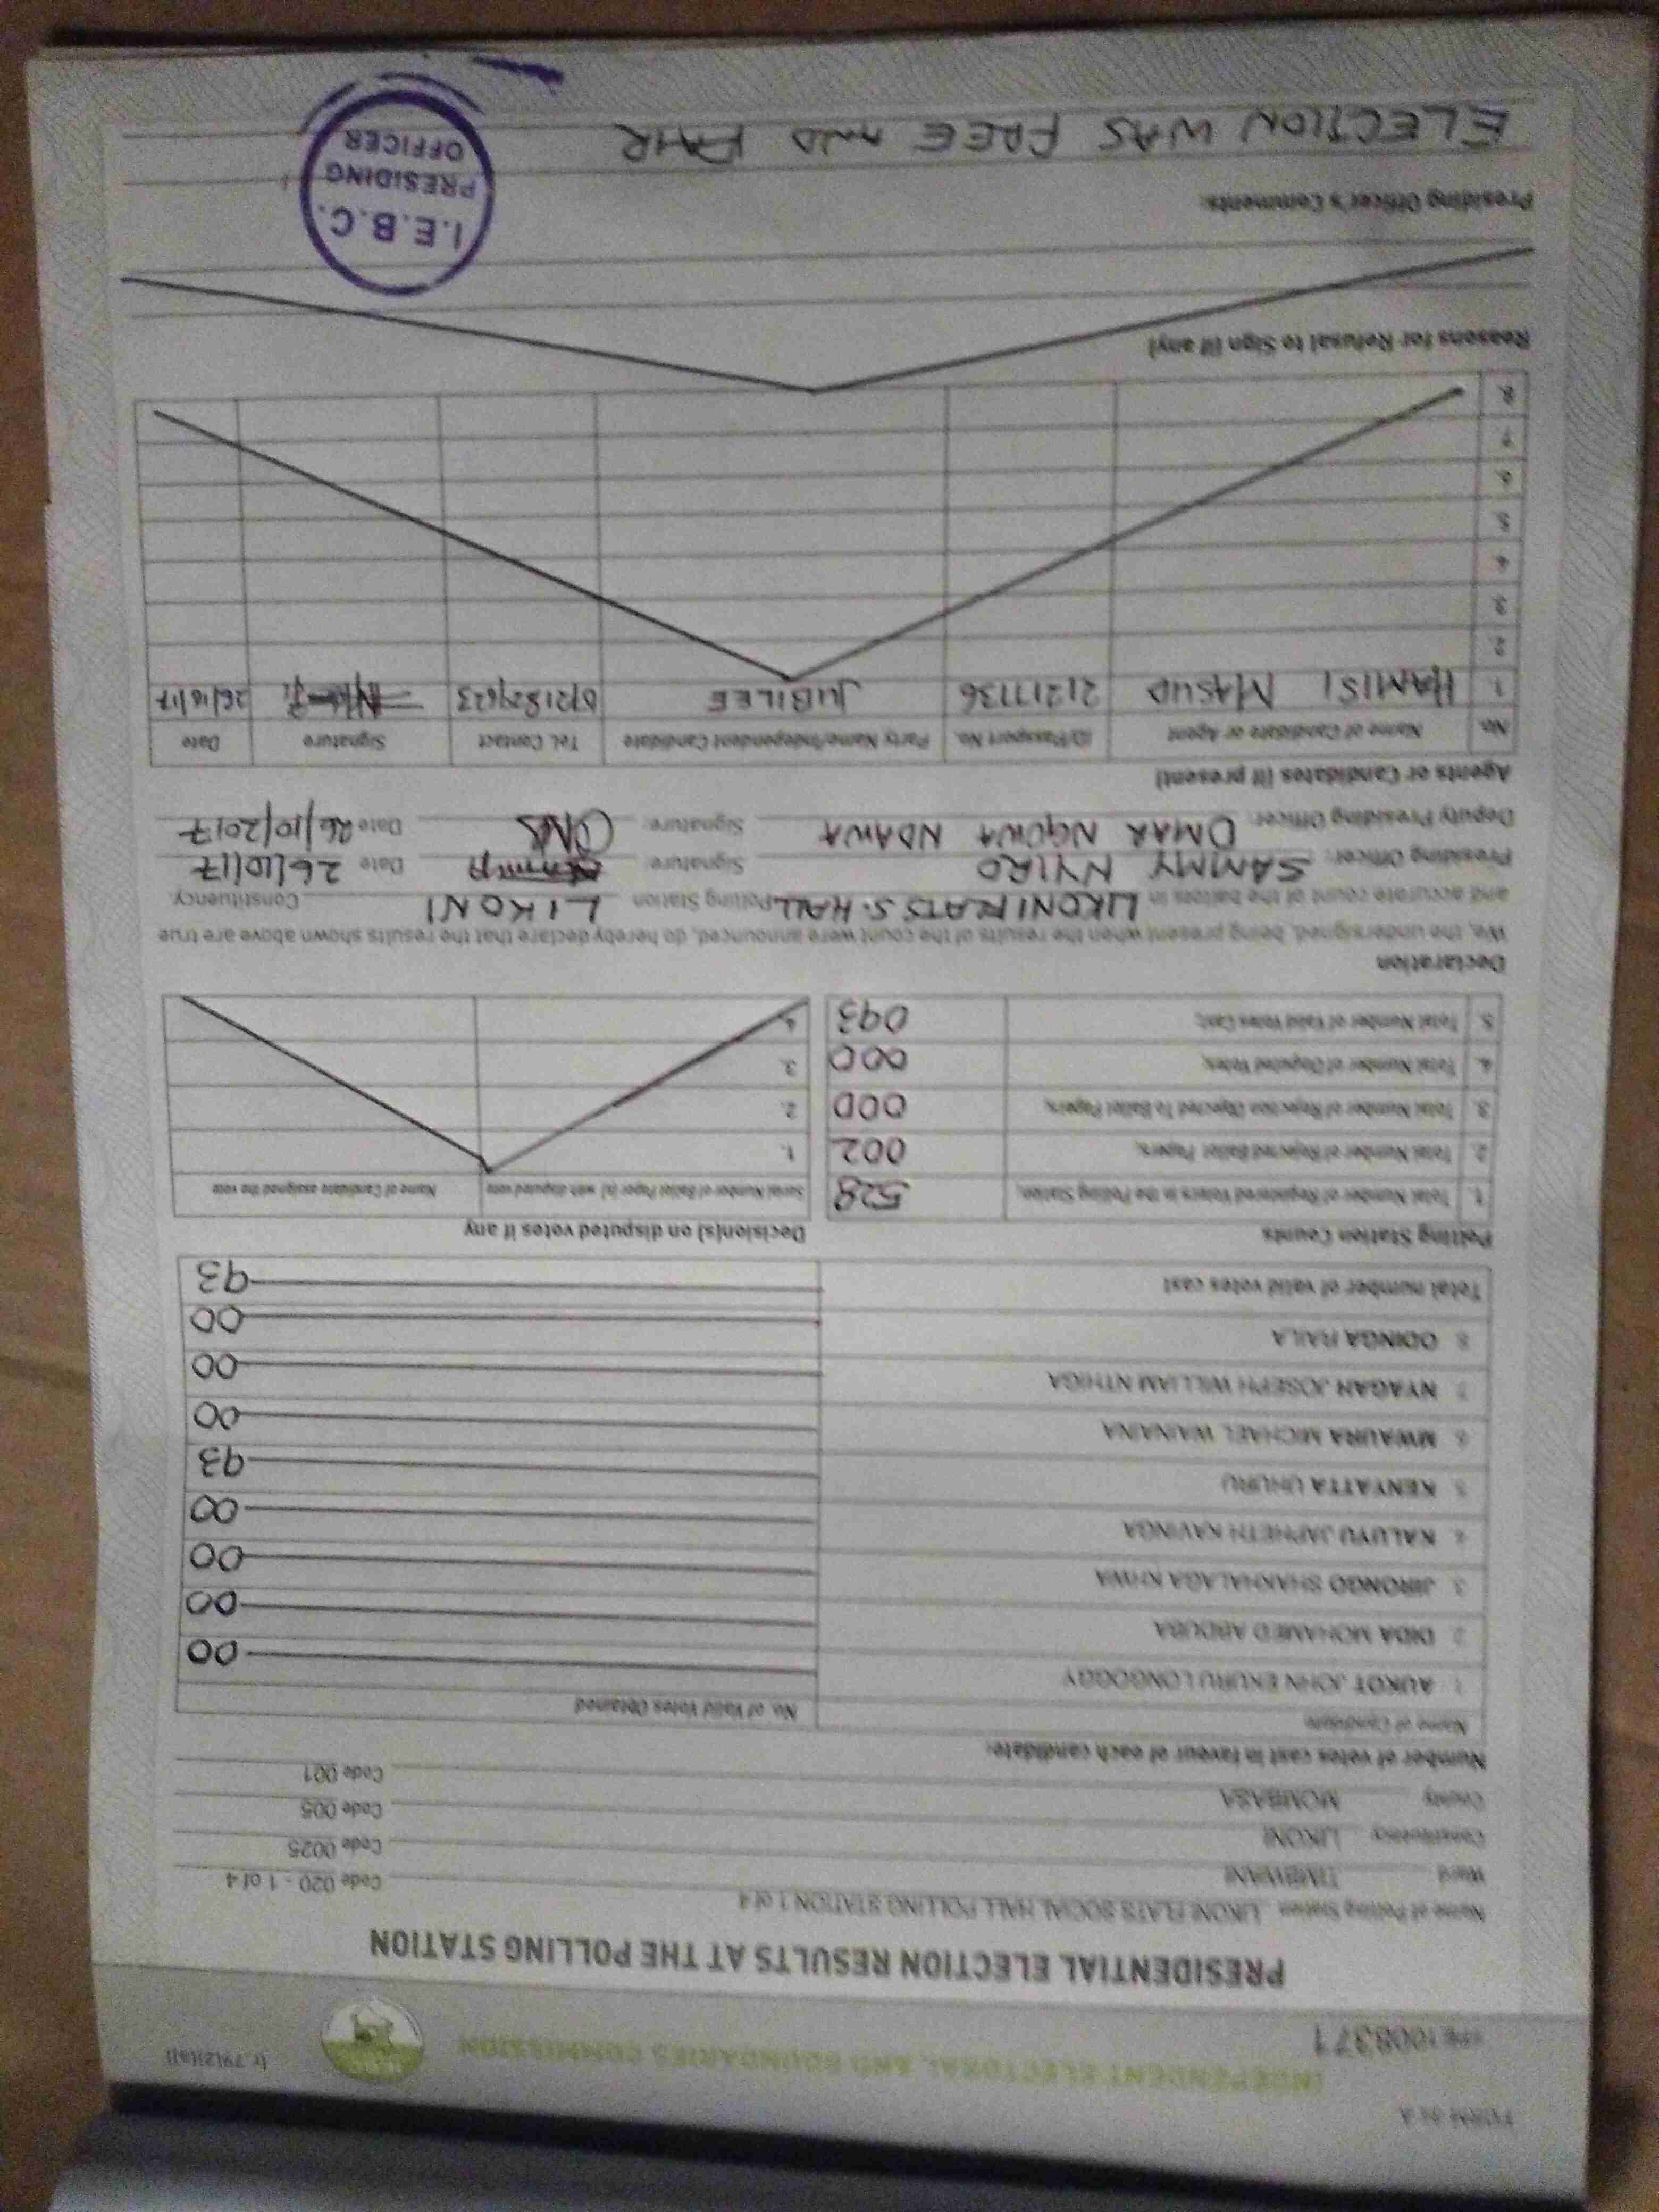 FORM 34 A
INDEPENDENT ELECTORAL AND BOUNDARIES COMMISSION
1008371
PRESIDENTIAL ELECTION RESULTS AT THE POLLING STATION
Name of Polling Station LIKONI FLATS SOCIAL HALL POLLING STATION 1 of 4 Code 020 - 1 of 4
Ward TIMBWANI Code 0025
Constituency LIKONI Code 005
County MOMBASA Code 001
Number of votes cast in favour of each candidate:
Name of Candidate No. of Valid Votes Obtained
1. AUKOT JOHN EKURU LONGOGGY 00
2. DIDA MOHAMED ABDUBA 00
3. JIRONGO SHAKHALAGA KHWA 00
4. KALUYU JAPHETH KAVINGA 00
5. KENYATTA UHURU 93
6. MWAURA MICHAEL WAINAINA 00
7. NYAGAH JOSEPH WILLIAM NTHIGA 00
8. ODINGA RAILA 00
Total number of valid votes cast 93
Polling Station Counts
1. Total Number of Registered Voters in the Polling Station; 528
2. Total Number of Rejected Ballot Papers; 002
3. Total Number of Rejection Objected To Ballot Papers; 000
4. Total Number of Disputed Votes; 000
5. Total Number of Valid Votes Cast; 093
Decision(s) on disputed votes if any
Serial Number of Ballot Paper (s) with disputed vote Name of Candidate assigned the vote
1.
2.
3.
4.
Declaration
We, the undersigned, being present when the results of the count were announced, do hereby declare that the results shown above are true
and accurate count of the ballots in LIKONI FLATS S. HALL Polling Station LIKONI Constituency
Presiding Officer: SAMMY NYIRO Signature: Date 26/10/17
Deputy Presiding Officer: OMAR NGUWA NDAWA Signature: Date 26/10/2017
Agents or Candidates (if present)
No. Name of Candidate or Agent ID/Passport No. Party Name/Independent Candidate Tel. Contact Signature Date
1. HAMISI MASUD 21217736 JUBILEE 26/10/17
2.
3.
4.
5.
6.
7.
8.
Reasons for Refusal to Sign (if any)
Presiding Officer's Comments:
ELECTION WAS FREE AND FAIR
I.E.B.C.
PRESIDING
OFFICER